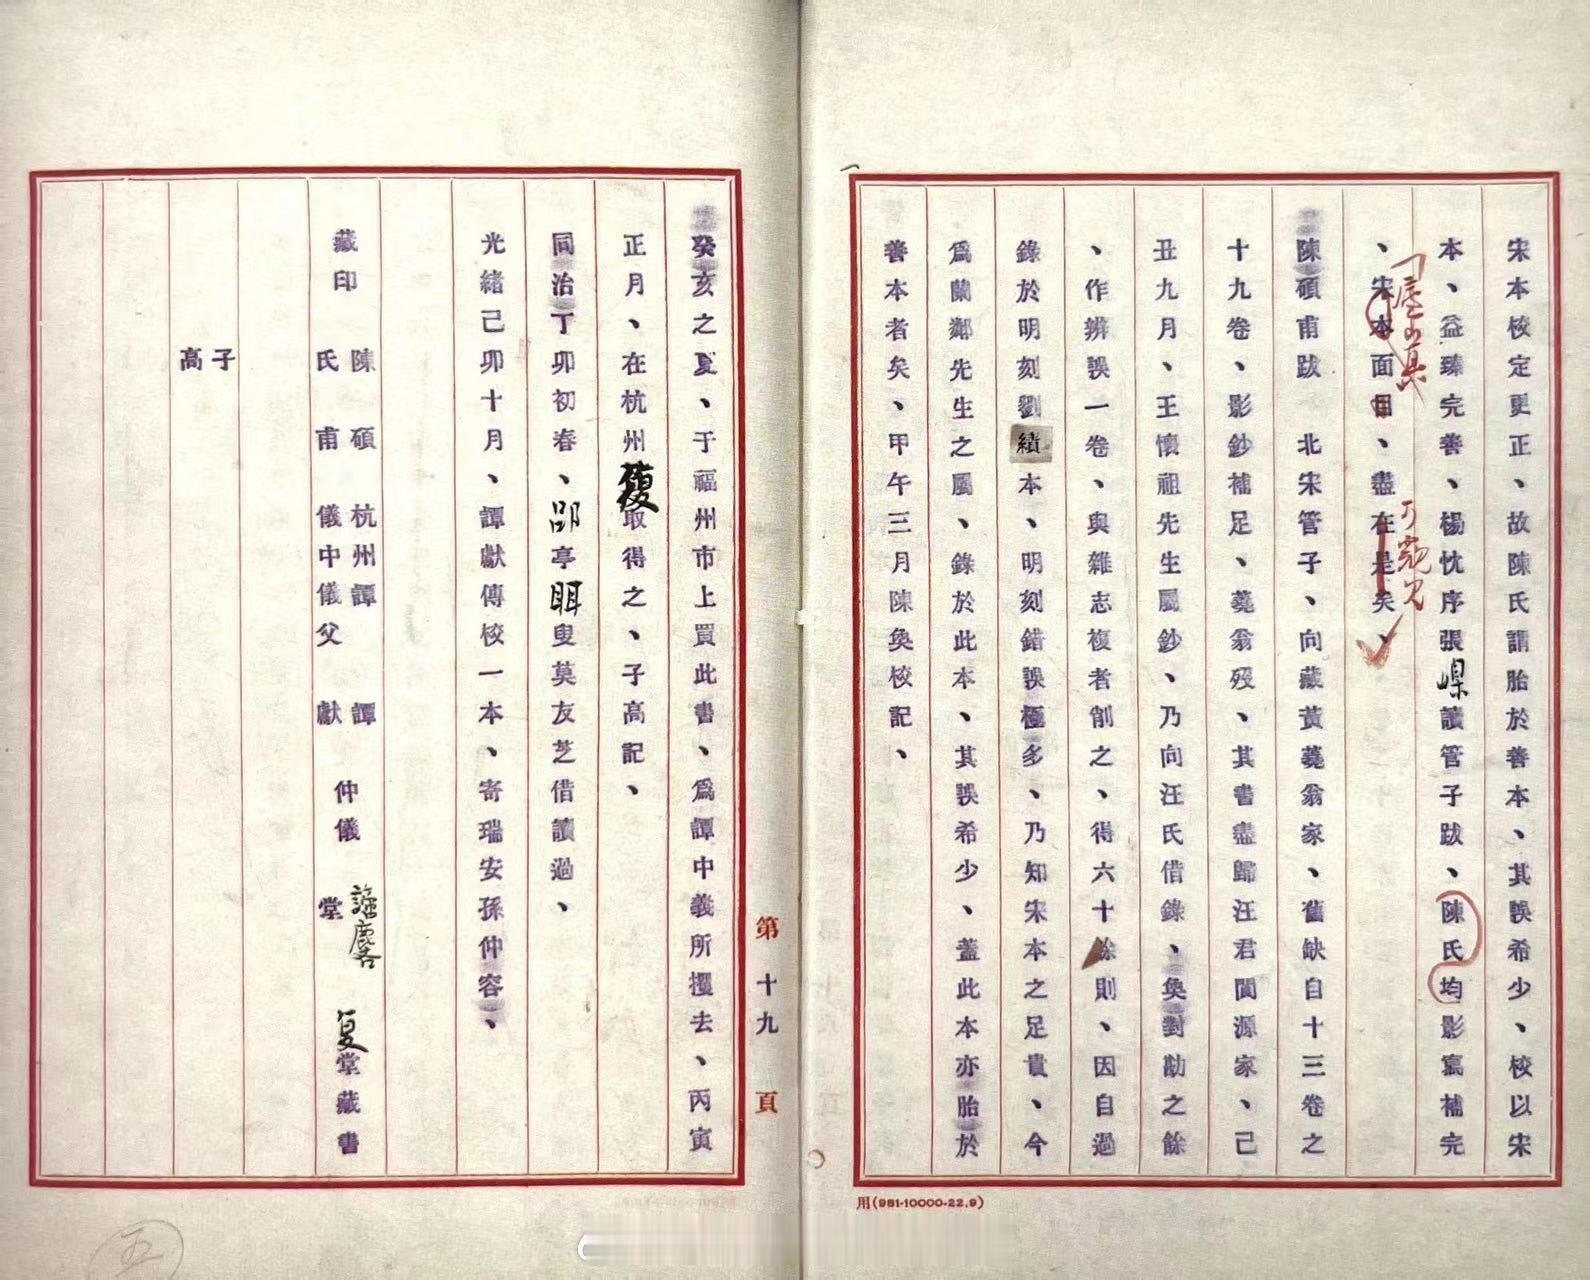 宋本校定更正、故陳氏謂胎於善本、其誤希少、校以宋
本、益臻完善、楊忱序張嵲讀管子跋、陳氏均影寫補完
、宋本面目、盡在是矣、
陳碩甫跋　北宋管子、向藏黃蕘翁家、舊缺自十三卷之
十九卷、影鈔補足、蕘翁歿、其書盡歸汪君閬源家、己
丑九月、王懷祖先生屬鈔、乃向汪氏借錄、奐對勘之餘
、作辨誤一卷、與雜志複者削之、得六十餘則、因自過
錄於明刻劉績本、明刻錯誤極多、乃知宋本之足貴、今
爲蘭鄰先生之屬、錄於此本、其誤希少、蓋此本亦胎於
善本者矣、甲午三月陳奐校記、
用(981-10000-22.9)
第十九頁
癸亥之夏、于福州市上買此書、爲譚中義所攫去、丙寅
正月、在杭州復取得之、子高記、
同治丁卯初春、郘亭眲叟莫友芝借讀過、
光緒己卯十月、譚獻傳校一本、寄瑞安孫仲容、
藏印　陳碩甫氏　杭州譚儀中儀父　譚獻　仲儀　堂　复堂藏書
子高
五